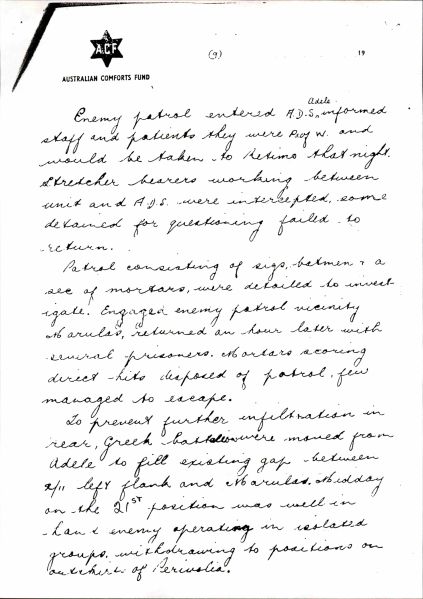 A.C.F
(9)
19
AUSTRALIAN COMFORTS FUND
Adele
Enemy patrol entered A.D.S., informed
staff and patients they were P of W. and
would be taken to Retimo that night.
Stretcher bearers working between
unit and A.D.S. were intercepted, some
detained for questioning failed to
return.
Patrol consisting of sigs, batmen + a
sec of mortars, were detailed to invest-
igate. Engaged enemy patrol vicinity
Marulas, returned an hour later with
several prisoners. Mortars scoring
direct hits disposed of patrol, few
managed to escape.
To prevent further infiltration in
rear, Greek battalion were moved from
Adele to fill existing gap between
2/11 left flank and Marulas. Midday
on the 21ST position was well in
hand enemy operating in isolated
groups, withdrawing to positions on
outskirts of Perivolia.